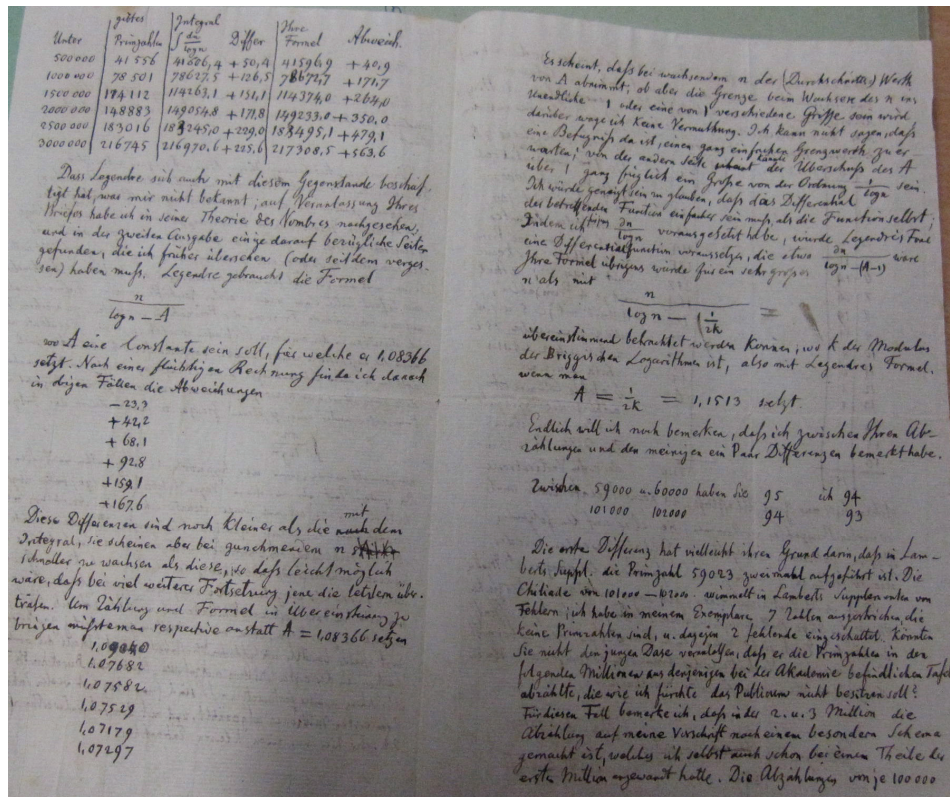 Unter | giebt es Primzahlen | Integral ∫ dn/log n | Differ | Ihre Formel | Abweich.
500000 | 41556 | 41606,4 | +50,4 | 41596,9 | +40,9
1000000 | 78501 | 78627,5 | +126,5 | 78672,7 | +171,7
1500000 | 114112 | 114263,1 | +151,1 | 114374,0 | +264,0
2000000 | 148883 | 149054,8 | +171,8 | 149233,0 | +350,0
2500000 | 183016 | 183245,0 | +229,0 | 183495,1 | +479,1
3000000 | 216745 | 216970,6 | +225,6 | 217308,5 | +563,6
Dass Legendre sich auch mit diesem Gegenstande beschäf-
tigt hat, war mir nicht bekannt; auf Veranlassung Ihres
Briefes habe ich in seiner Theorie des Nombres nachgesehen,
und in der zweiten Ausgabe einige darauf bezügliche Seiten
gefunden, die ich früher übersehen (oder seitdem verges-
sen) haben muß. Legendre gebraucht die Formel
n
log n – A
wo A eine Constante sein soll, für welche er 1,08366
setzt. Nach einer flüchtigen Rechnung finde ich danach
in obigen Fällen die Abweichungen
–23,3
+42,2
+68,1
+92,8
+159,1
+167,6
Diese Differenzen sind noch kleiner als die mit dem
Integral, sie scheinen aber bei zunehmendem n
schneller zu wachsen als diese, so daß leicht möglich
wäre, daß bei viel weiterer Fortsetzung jene die letztern über-
träfen. Um Zählung und Formel in Übereinstimung zu
bringen müßte man respective anstatt A = 1,08366 setzen
1,09040
1,07682
1,07582
1,07529
1,07179
1,07297
Es scheint, daß bei wachsendem n der (Durchschnitts) Werth
von A abnimmt; ob aber die Grenze beim Wachsen des n ins
Unendliche 1 oder eine von 1 verschiedene Größe sein wird
darüber wage ich keine Vermuthung. Ich kann nicht sagen, daß
eine Befugniß da ist, einen ganz einfachen Grenzwerth zu er
warten; von der andern Seite könnte der Überschuß des A
über 1 ganz füglich eine Größe von der Ordnung 1/log n sein.
Ich würde geneigt sein zu glauben, daß das Differential
der betreffenden Function einfacher sein muß, als die Function selbst;
Indem ich für dn/log n vorausgesetzt habe, würde Legendres
eine Differentialfunction voraussetzen, die etwa dn/log n – (A–1) wäre
Ihre Formel übrigens würde für ein sehr großes
n als mit
n
log n – 1/2k
übereinstimmend betrachtet werden können, wo k der Modulus
der Briggischen Logarithmen ist, also mit Legendres Formel,
wenn man
A = 1/2k = 1,1513 setzt.
Endlich will ich noch bemerken, daß ich zwischen Ihren Ab-
zählungen und den meinigen ein Paar Differenzen bemerkt habe.
Zwischen 59000 u. 60000 haben Sie 95 ich 94
101000 102000 94 93
Die erste Differenz hat vielleicht ihren Grund darin, daß in Lam-
berts Suppl. die Primzahl 59023 zweimahl aufgeführt ist. Die
Chiliade von 101000–102000 wimmelt in Lamberts Supplementen von
Fehlern; ich habe in meinem Exemplare 7 Zahlen ausgestrichen, die
keine Primzahlen sind, u. dagegen 2 fehlende eingeschaltet. Könnten
Sie nicht den jungen Dase veranlassen, daß er die Primzahlen in den
folgenden Millionen aus derjenigen bei der Akademie befindlichen Tafel
abzählte, die wie ich fürchte das Publicum nicht besitzen soll?
Für diesen Fall bemerke ich, daß in der 2. u. 3 Million die
Abzählung auf meine Vorschrift nach einem besondern Schema
gemacht ist, welches ich selbst auch schon bei einem Theile der
ersten Million angewandt hatte. Die Abzählungen von je 100000